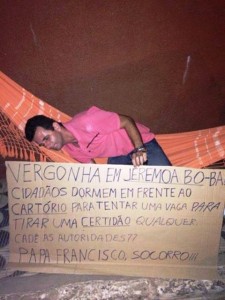 VERGONHA EM JEREMOABO-BA!
CIDADÃOS DORMEM EM FRENTE AO
CARTÓRIO PARA TENTAR UMA VAGA PARA
TIRAR UMA CERTIDÃO QUALQUER
CADÊ AS AUTORIDADES??
PAPA FRANCISCO, SOCORRO!!!